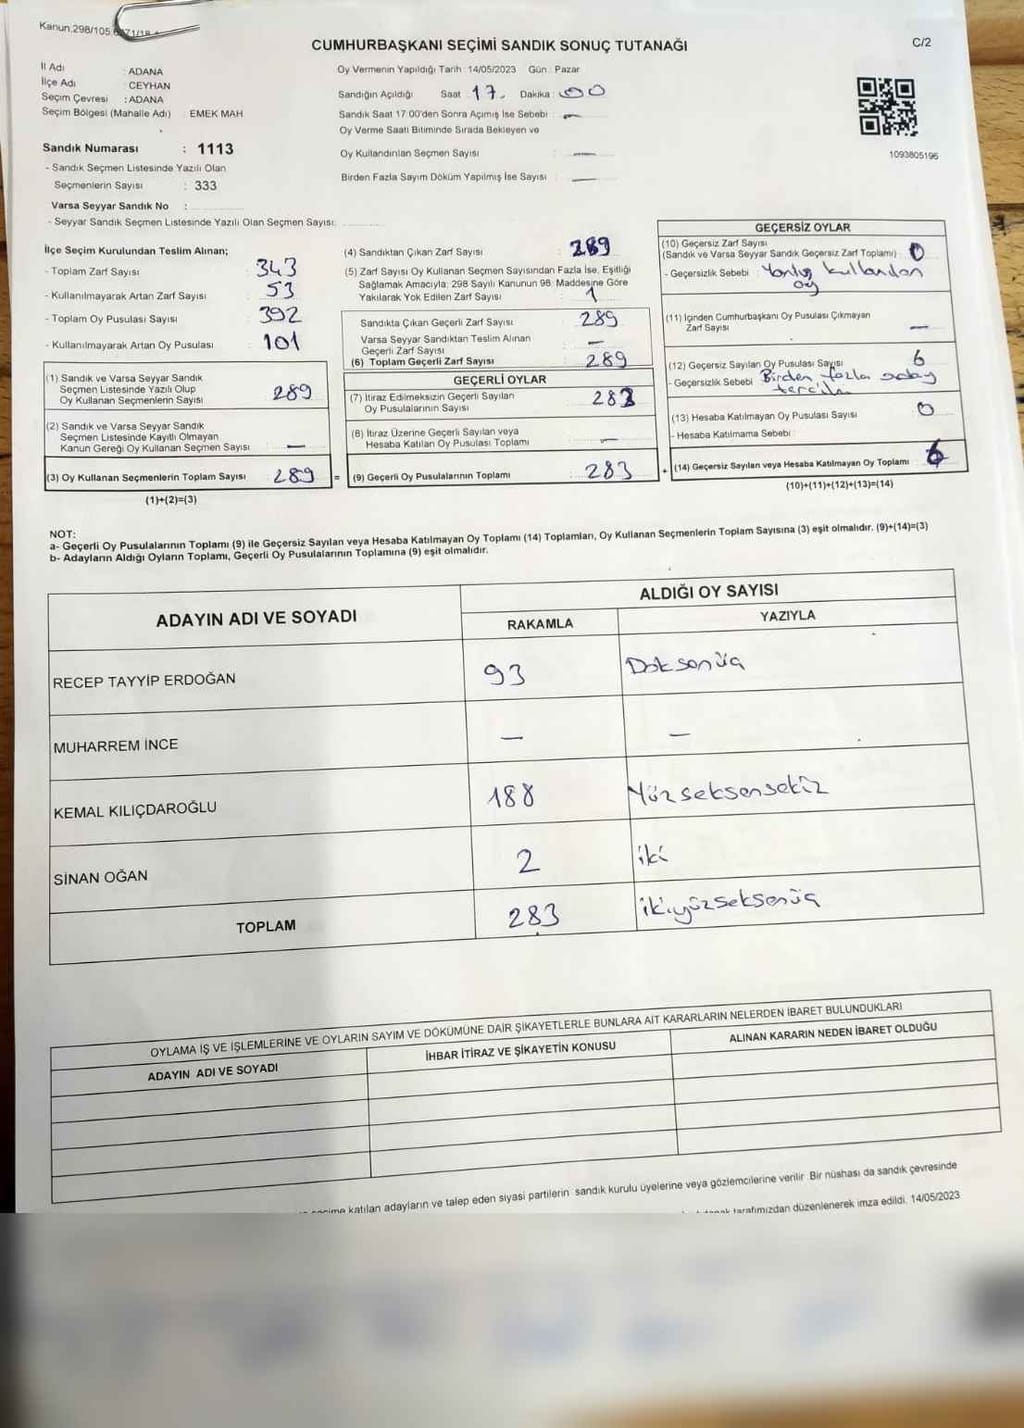 Kanun.298/105
CUMHURBAŞKANI SEÇİMİ SANDIK SONUÇ TUTANAĞI
C/2
İl Adı : ADANA
İlçe Adı : CEYHAN
Seçim Çevresi : ADANA
Seçim Bölgesi (Mahalle Adı) : EMEK MAH
Sandık Numarası : 1113
- Sandık Seçmen Listesinde Yazılı Olan
Seçmenlerin Sayısı : 333
Varsa Seyyar Sandık No :
- Seyyar Sandık Seçmen Listesinde Yazılı Olan Seçmen Sayısı:
Oy Vermenin Yapıldığı Tarih : 14/05/2023 Gün : Pazar
Sandığın Açıldığı Saat : 17. Dakika : 00
Sandık Saat 17:00'den Sonra Açımış İse Sebebi : —
Oy Verme Saati Bitiminde Sırada Bekleyen ve
Oy Kullandırılan Seçmen Sayısı : —
Birden Fazla Sayım Döküm Yapılmış İse Sayısı : —
1093805196
İlçe Seçim Kurulundan Teslim Alınan;
- Toplam Zarf Sayısı : 343
- Kullanılmayarak Artan Zarf Sayısı : 53
- Toplam Oy Pusulası Sayısı : 392
- Kullanılmayarak Artan Oy Pusulası : 101
(1) Sandık ve Varsa Seyyar Sandık
Seçmen Listesinde Yazılı Olup
Oy Kullanan Seçmenlerin Sayısı : 289
(2) Sandık ve Varsa Seyyar Sandık
Seçmen Listesinde Kayıtlı Olmayan
Kanun Gereği Oy Kullanan Seçmen Sayısı : —
(3) Oy Kullanan Seçmenlerin Toplam Sayısı : 289 =
(1)+(2)=(3)
(4) Sandıktan Çıkan Zarf Sayısı : 289
(5) Zarf Sayısı Oy Kullanan Seçmen Sayısından Fazla İse, Eşitliği
Sağlamak Amacıyla; 298 Sayılı Kanunun 98. Maddesine Göre
Yakılarak Yok Edilen Zarf Sayısı : 1
Sandıkta Çıkan Geçerli Zarf Sayısı : 289
Varsa Seyyar Sandıktan Teslim Alınan
Geçerli Zarf Sayısı : —
(6) Toplam Geçerli Zarf Sayısı : 289
GEÇERLİ OYLAR
(7) İtiraz Edilmeksizin Geçerli Sayılan
Oy Pusulalarının Sayısı : 283
(8) İtiraz Üzerine Geçerli Sayılan veya
Hesaba Katılan Oy Pusulası Toplamı : —
(9) Geçerli Oy Pusulalarının Toplamı : 283 +
GEÇERSİZ OYLAR
(10) Geçersiz Zarf Sayısı
(Sandık ve Varsa Seyyar Sandık Geçersiz Zarf Toplamı) : 0
- Geçersizlik Sebebi : Yanlış kullanılan
oy
(11) İçinden Cumhurbaşkanı Oy Pusulası Çıkmayan
Zarf Sayısı : —
(12) Geçersiz Sayılan Oy Pusulası Sayısı : 6
- Geçersizlik Sebebi : Birden fazla aday
(13) Hesaba Katılmayan Oy Pusulası Sayısı : 0
- Hesaba Katılmama Sebebi :
(14) Geçersiz Sayılan veya Hesaba Katılmayan Oy Toplamı : 6
(10)+(11)+(12)+(13)=(14)
NOT:
a- Geçerli Oy Pusulalarının Toplamı (9) ile Geçersiz Sayılan veya Hesaba Katılmayan Oy Toplamı (14) Toplamları, Oy Kullanan Seçmenlerin Toplam Sayısına (3) eşit olmalıdır. (9)+(14)=(3)
b- Adayların Aldığı Oyların Toplamı, Geçerli Oy Pusulalarının Toplamına (9) eşit olmalıdır.
ADAYIN ADI VE SOYADI
ALDIĞI OY SAYISI
RAKAMLA YAZIYLA
RECEP TAYYİP ERDOĞAN 93 Doksanüç
MUHARREM İNCE — —
KEMAL KILIÇDAROĞLU 188 Yüzseksensekiz
SİNAN OĞAN 2 iki
TOPLAM 283 ikiyüzseksenüç
OYLAMA İŞ VE İŞLEMLERİNE VE OYLARIN SAYIM VE DÖKÜMÜNE DAİR ŞİKAYETLERLE BUNLARA AİT KARARLARIN NELERDEN İBARET BULUNDUKLARI
ADAYIN ADI VE SOYADI İHBAR İTİRAZ VE ŞİKAYETİN KONUSU ALINAN KARARIN NEDEN İBARET OLDUĞU
katılan adayların ve talep eden siyasi partilerin sandık kurulu üyelerine veya gözlemcilerine verilir. Bir nüshası da sandık çevresinde
tarafımızdan düzenlenerek imza edildi. 14/05/2023